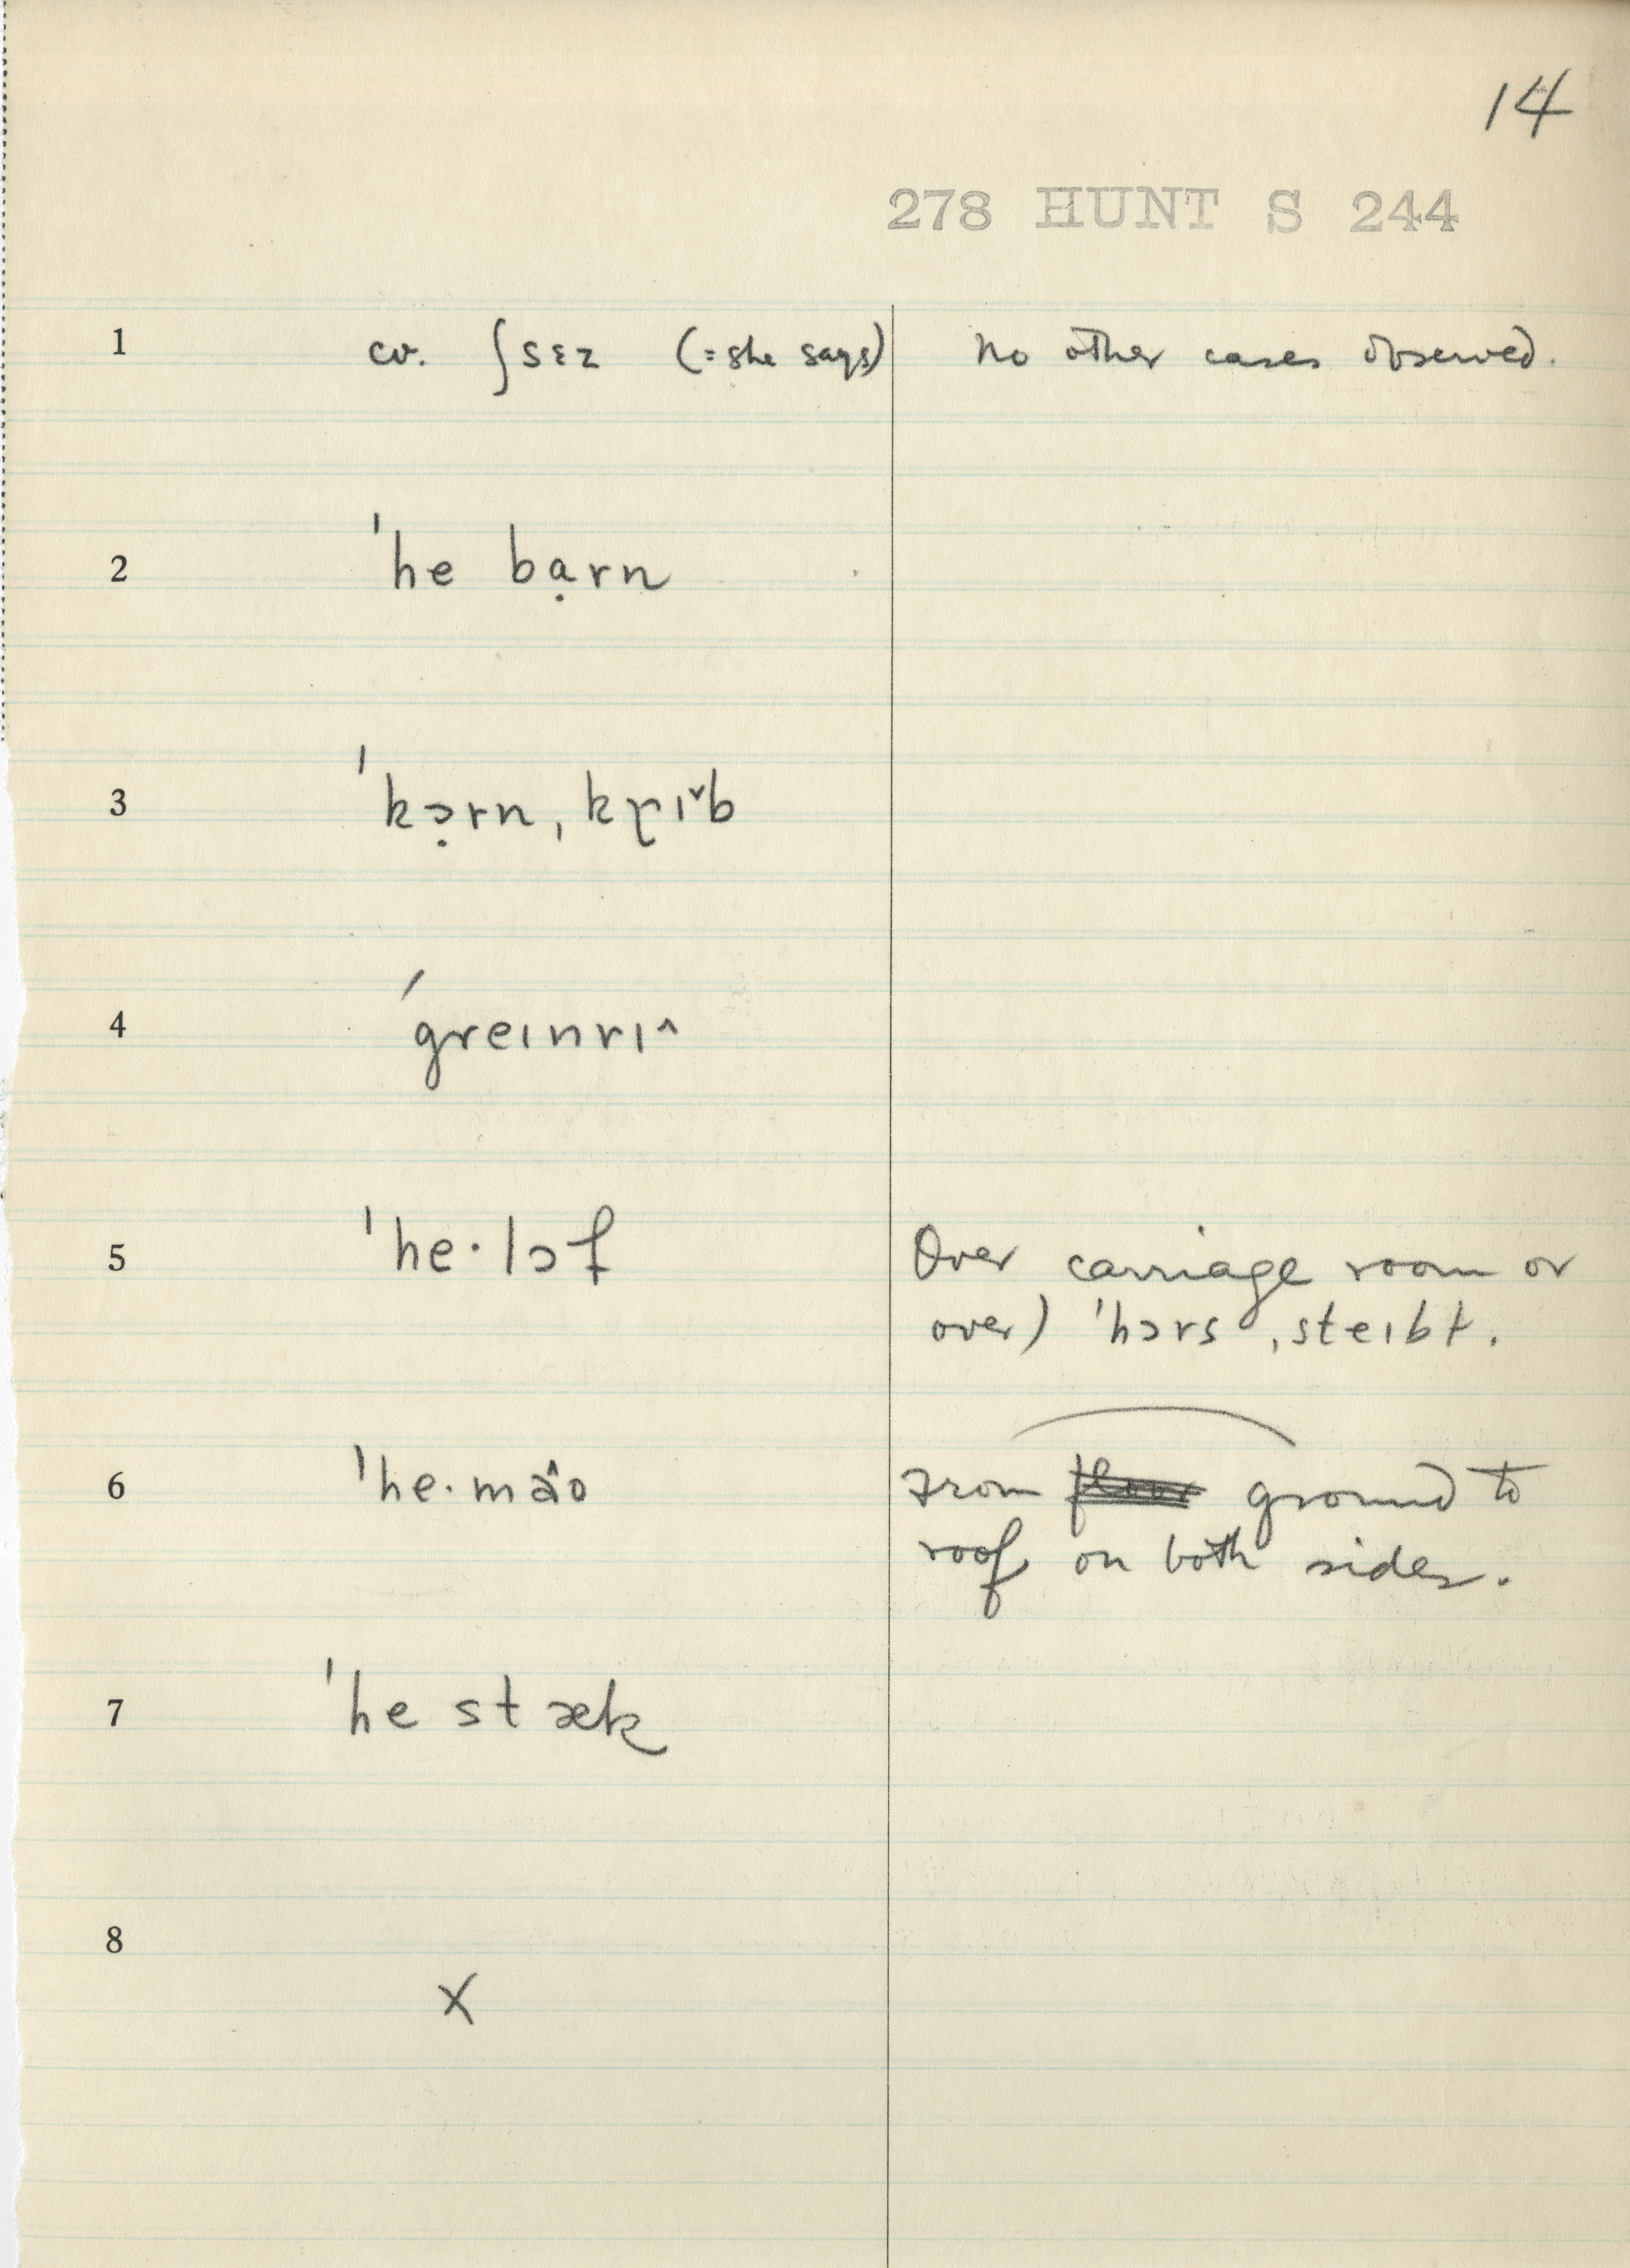 14
278 HUNT S 244
1 cv. ʃsɛz (=she says) No other cases observed.
2 ˈhe bạrn
3 ˈkɔ̣rn ˌkɽɪˇb
4 ˈgreɪnrɪ^
5 ˈhe·lɔf Over carriage room or
over) ˈhɔrs ˌsteɪbɫ.
6 ˈhe·mâo From ground to
roof on both sides.
7 ˈhe stæk
8
X